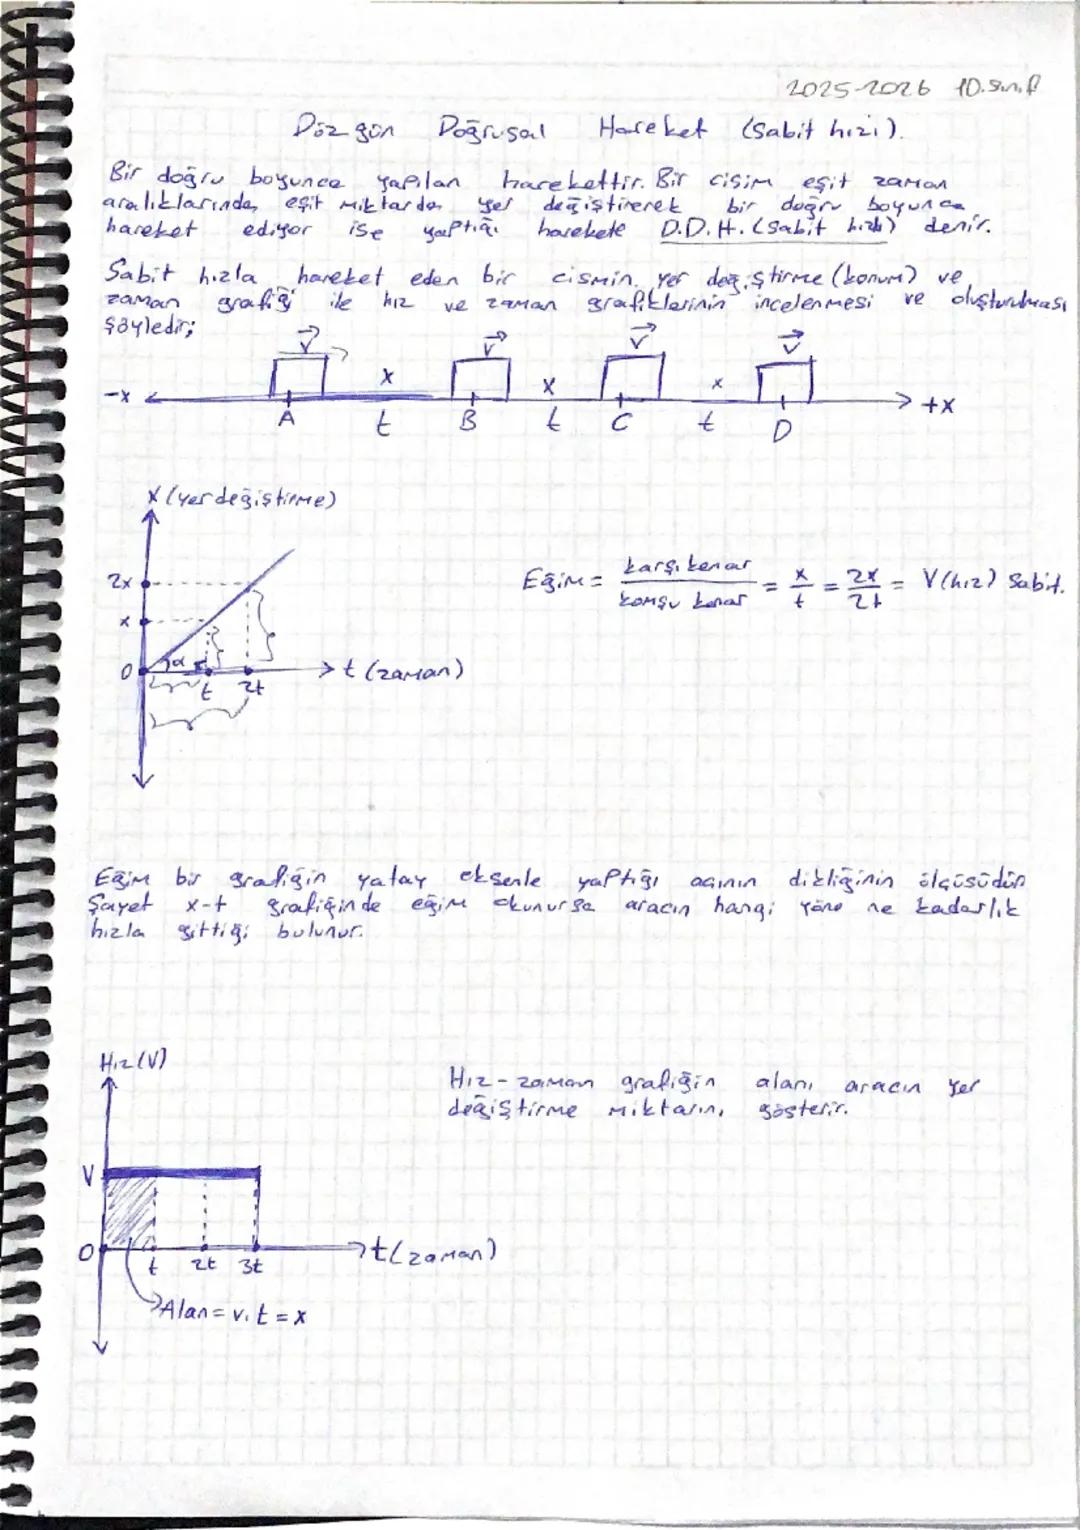 2025-2026 10.Sınıf
Düzgün Doğrusal Hareket (Sabit hızı).
Bir doğru boyunca yapılan harekettir. Bir cisim eşit zaman
aralıklarında eşit miktarda yer değiştirerek bir doğru boyunca
hareket ediyor ise yaptığı harekete D.D.H. (Sabit hızlı) denir.
Sabit hızla hareket eden bir cismin yer değiştirme (konum) ve
zaman grafiği ile hız ve zaman grafiklerinin incelenmesi ve oluşturulması
şöyledir;
V V V V
x x x
-x A t B t C t D +x
x (yer değiştirme)
2x
x
0 α t 2t t (zaman)
Eğim = karşı kenar / komşu kenar = x/t = 2x/2t = V(hız) Sabit.
Eğim bir grafiğin yatay eksenle yaptığı açının dikliğinin ölçüsüdür
Şayet x-t grafiğinde eğim okunursa aracın hangi yöne ne kadarlık
hızla gittiği bulunur.
Hız (V)
V
0 t 2t 3t t (zaman)
Alan = v.t = x
Hız - zaman grafiğin alanı aracın yer
değiştirme miktarını gösterir.